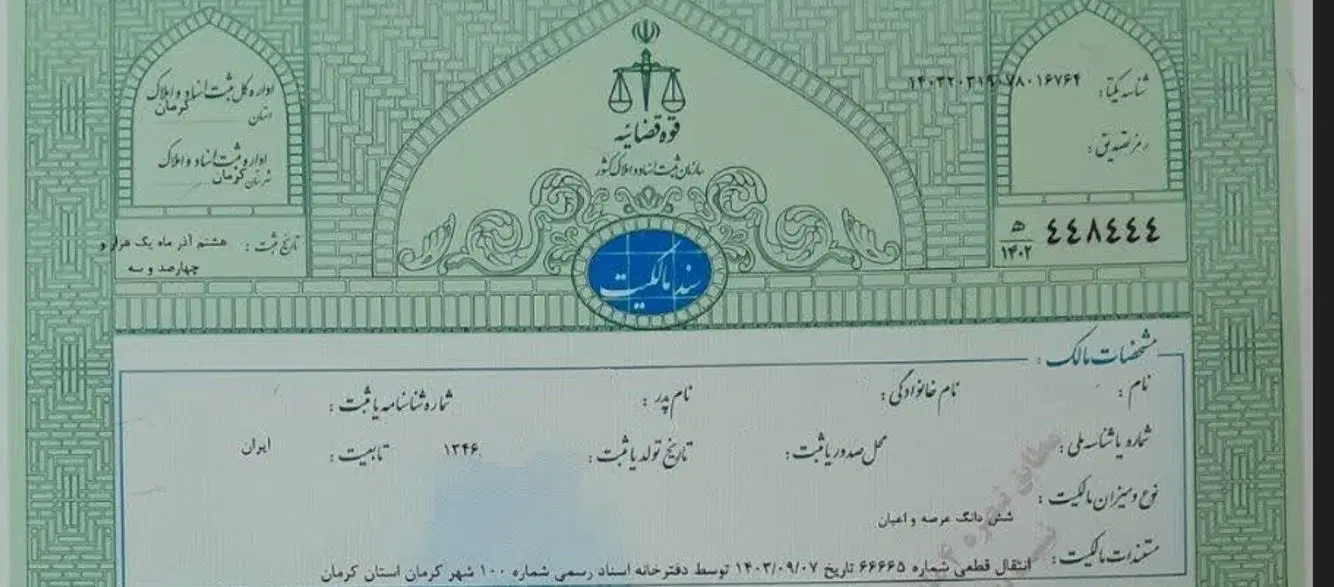 شناسه یکتا: ۱۴۰۳۲۰۳۱۹۰۷۸۰۱۶۷۶۴
رمز تصدیق:
٤٤٨٤٤٤ ه‍ ۱۴۰۲
قوه قضائیه
سازمان ثبت اسناد و املاک کشور
سند مالکیت
اداره کل ثبت اسناد و املاک
استان کرمان
اداره ثبت اسناد و املاک
شهرستان کرمان
تاریخ ثبت: هشتم آذر ماه یک هزار و
چهارصد و سه
مشخصات مالک:
نام: نام خانوادگی: نام پدر: شماره شناسنامه یا ثبت:
شماره یا شناسه ملی: محل صدور یا ثبت: تاریخ تولد یا ثبت: ۱۳۴۶ تابعیت: ایران
نوع و میزان مالکیت:
شش دانگ عرصه و اعیان
مستندات مالکیت:
انتقال قطعی شماره ۶۶۶۶۵ تاریخ ۱۴۰۳/۰۹/۰۷ توسط دفترخانه اسناد رسمی شماره ۱۰۰ شهر کرمان استان کرمان